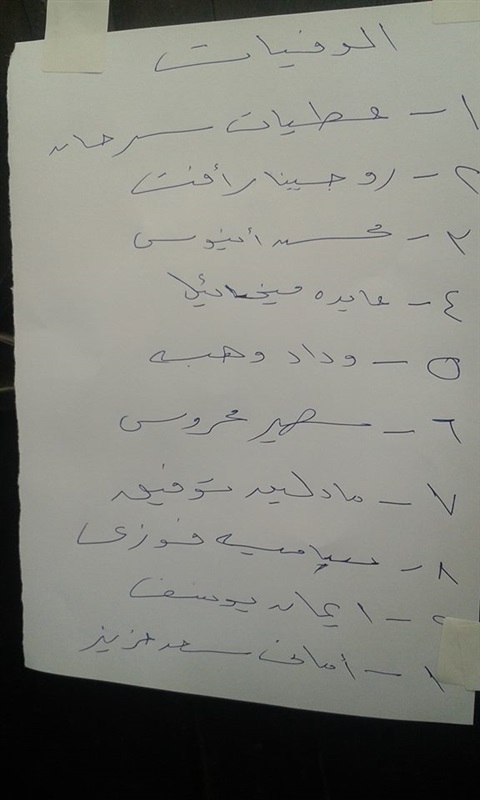 الوفيات
١ - عطيات سرحان
٢ - روجينا رأفت
٣ - محسن أنيوس
٤ - عايده ميخائيل
٥ - وداد وهبه
٦ - سهير محروس
٧ - مادلين توفيق
٨ - سامية فوزى
٩ - ايمان يوسف
١ - أمانى سعد عزيز